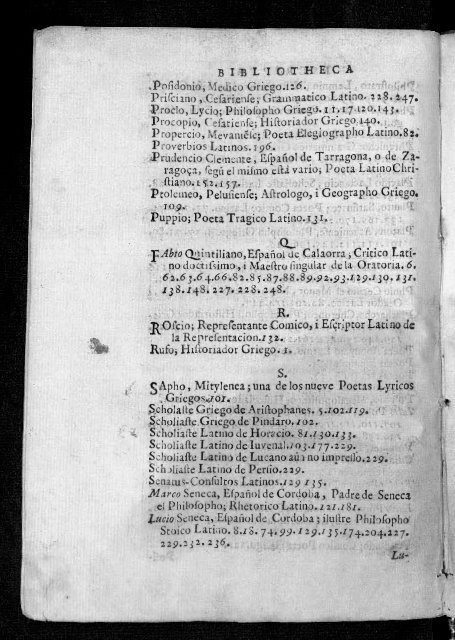 BIBLIOTHECA
Posidonio, Medico Griego.126.
Prisciano, Cesariense; Grammatico Latino. 228.247.
Proclo, Lycio; Philosopho Griego.11.17.120.143.
Procopio, Cesariense; Historiador Griego.140.
Propercio, Mevaniese; Poeta Elegiographo Latino.82.
Proverbios Latinos.196.
Prudencio Clemente, Español de Tarragona, o de Za-
ragoça, segũ el mismo està vario; Poeta Latino Chri-
stiano.152.157.
Ptolemeo, Pelusiense; Astrologo, i Geographo Griego.
109.
Puppio; Poeta Tragico Latino.131.
Q
FAbio Quintiliano, Español de Calaorra, Critico Lati-
no doctissimo, i Maestro singular de la Oratoria. 6.
62.63.64.66.82.85.87.88.89.92.93.129.130. 131.
138.148.227.228.248.
R.
ROscio; Representante Comico, i Escriptor Latino de
la Representacion.132.
Rufo; Historiador Griego.1.
S.
SApho, Mitylenea; una de los nueve Poetas Lyricos
Griegos.101.
Scholiaste Griego de Aristophanes. 5.102.119.
Scholiaste Griego de Pindaro.102.
Scholiaste Latino de Horacio. 81.130.133.
Scholiaste Latino de Iuvenal.103.177.229.
Scholiaste Latino de Lucano aũ no impresso.229.
Scholiaste Latino de Persio.229.
Senatus-Consultos Latinos.129 135.
Marco Seneca, Español de Cordoba, Padre de Seneca
el Philosopho; Rhetorico Latino.121.181.
Lucio Seneca, Español de Cordoba; ilustre Philosopho
Stoico Latino. 8.18.74.99.129.135.174.204.227.
229.232.236.
Lu-